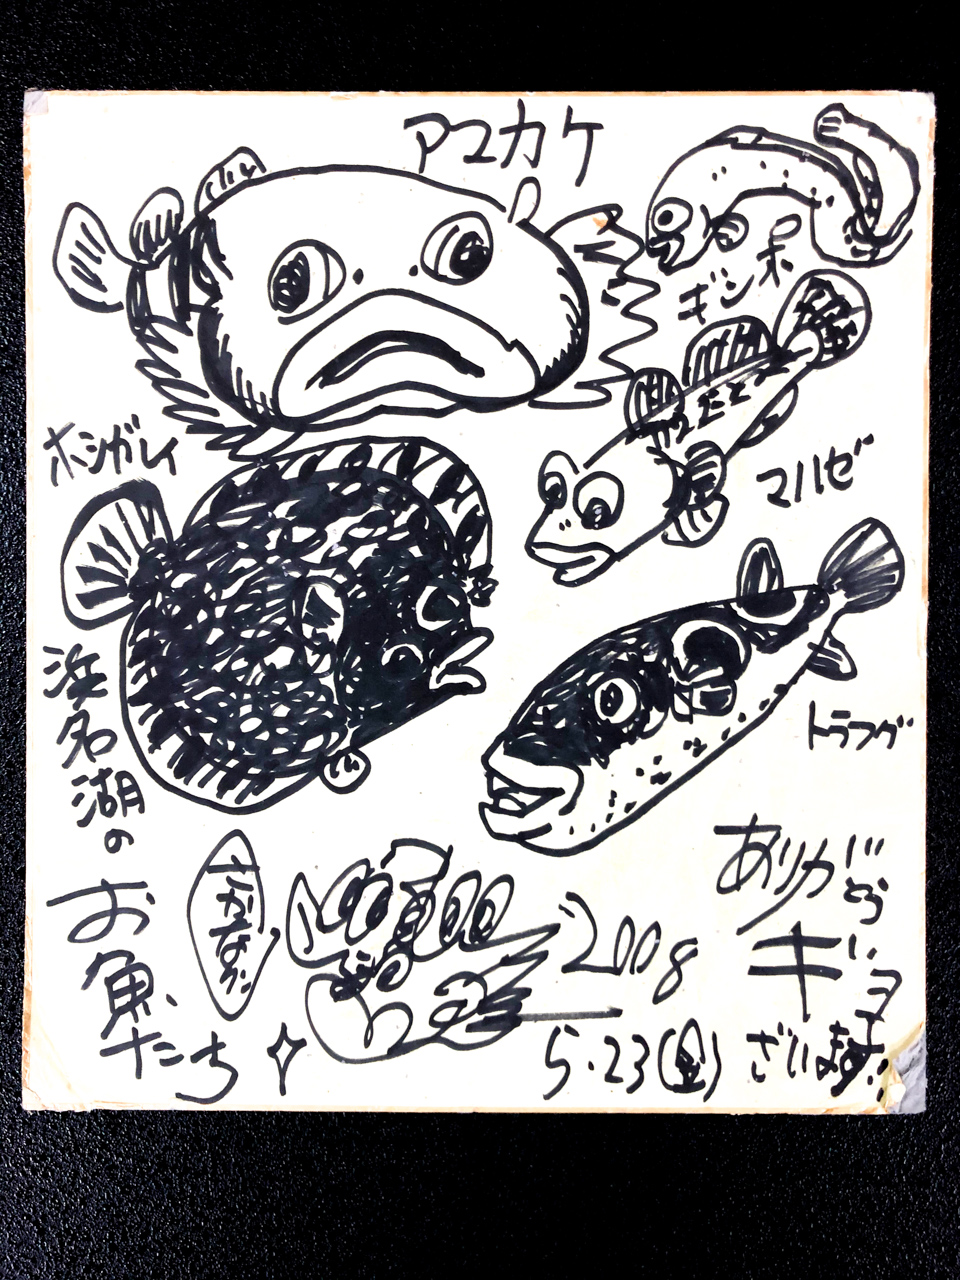 アユカケ
ギンポ
マハゼ
ホシガレイ
トラフグ
浜名湖の
お魚
たち
2008
5.23(金)
ありがとう
ギョ
ざいます!!